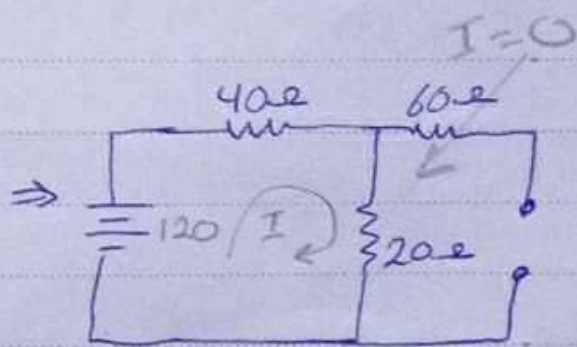 I=0
40Ω 60Ω
⇒ 120 I 20Ω